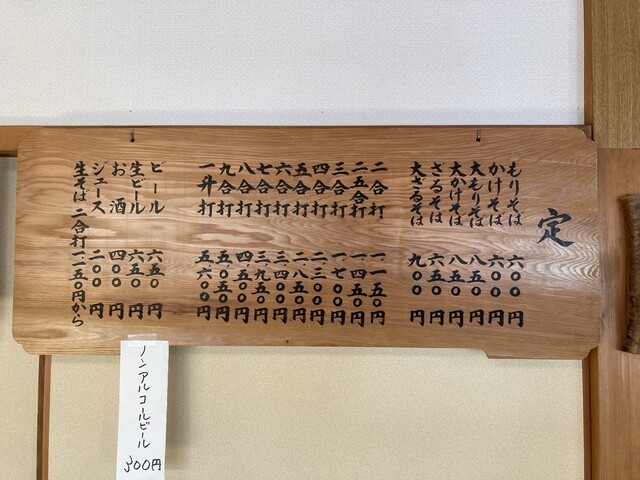 定
もりそば 六〇〇円
かけそば 六〇〇円
大もりそば 八五〇円
大かけそば 八五〇円
ざるそば 六五〇円
大ざるそば 九〇〇円
二合打 一一五〇円
二五合打 一四五〇円
三合打 一七〇〇円
四合打 二三〇〇円
五合打 二八五〇円
六合打 三四〇〇円
七合打 三九五〇円
八合打 四五〇〇円
九合打 五〇五〇円
一升打 五六〇〇円
ビール 六五〇円
生ビール 六五〇円
お酒 四〇〇円
ジュース 二〇〇円
生そば 二合打一一五〇円から
ノンアルコールビール
300円